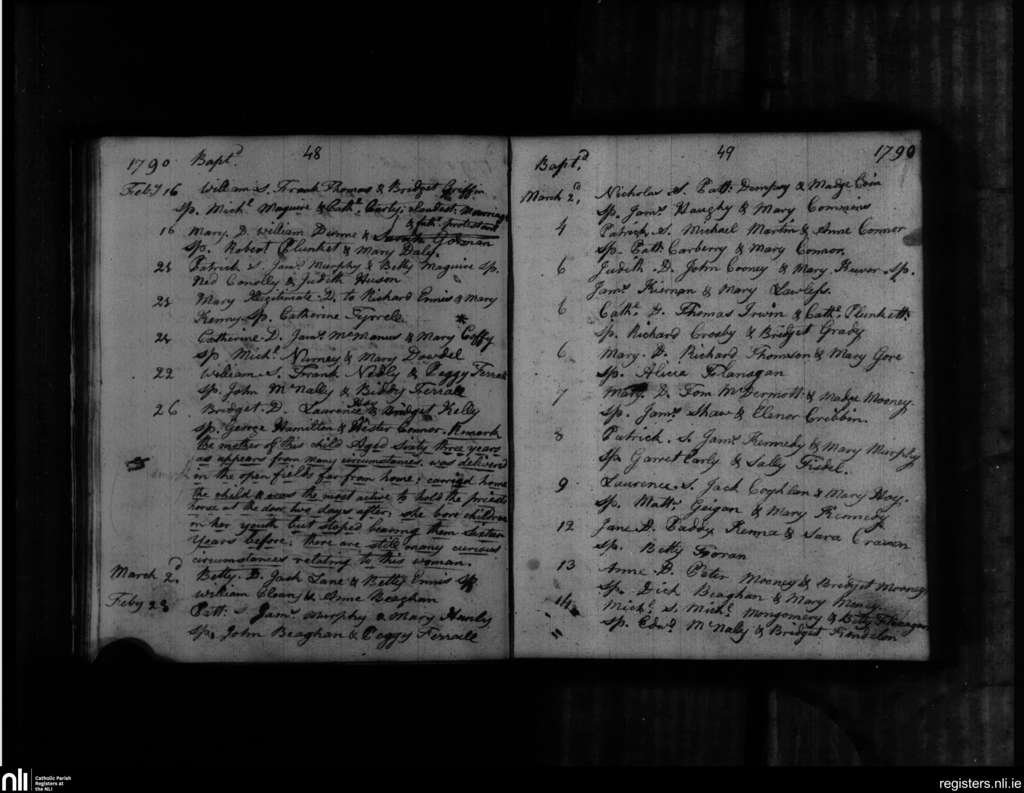 1790 Bapt.d 48
Feb.y 16 William S. Frank Thomas & Bridget Griffin
Sp. Mich.l Maguire & Cath.e Carty. Clandest. Marriage
& fath.r protestant
16 Mary. D. William Dunne & Sarah Gorman
Sp. Robert Plunket & Mary Daly.
21 Patrick S. Jam.s Murphy & Betty Maguire Sp.
Ned Conolly & Judith Huson
21 Mary Illegitimate D. to Richard Ennis & Mary
Kenny Sp. Catherine Tyrrele
24 Catherine D. Jam.s McManus & Mary Coffy
Sp Mich.l Nurney & Mary Dowdel
22 William S. Frank Nally & Peggy Ferrall
Sp. John McNally & Biddy Ferrall
26 Bridget D. Laurence & Bridget Kelly
Sp. George Hamilton & Hester Connor. Remark
the mother of this child Aged Sixty three years
as appears from many circumstances, was deliver'd
in the open fields far from home; carried home
the child & was the most active to hold the priests
horse at the door two days after, she bore children
in her youth but stoped bearing them Sixteen
Years before; there are still many curious
circumstances relating to this woman.
March 2.d Betty. D. Jack Lane & Betty Ennis Sp
William Cleary & Anne Beaghan
Feby 23 Patt: S. Jam.s Murphy & Mary Hanly
Sp. John Beaghan & Peggy Ferrall
Bapt.d 49 1790
March 2.d Nicholas S. Patt: Dempsy & Madge Coin
Sp. Jam.s Haughy & Mary Commins
4 Patrick S. Michael Martin & Anne Connor
Sp. Patt: Carberry & Mary Connor.
6 Judith D. John Cooney & Mary Keevor Sp.
Jam.s Kiernan & Mary Lawless.
6 Cath.e D. Thomas Irwin & Cath.e Plunkett
Sp. Richard Crosby & Bridget Grady
6 Mary. D. Richard Thomson & Mary Gore
Sp. Alicia Flanagan
7 Mary. D. Tom McDermott & Madge Mooney
Sp. Jam.s Shaw & Elenor Cribbin.
8 Patrick. S. Jam.s Kennedy & Mary Murphy
Sp. Garret Carly & Sally Fickel.
9 Laurence. S. Jack Coghlan & Mary Hoy.
Sp. Matt: Geigan & Mary Kennedy
12 Jane D. Paddy Kenna & Sara Craven
Sp. Betty Foran
13 Anne D. Peter Mooney & Bridget Mooney
Sp. Dick Beaghan & Mary Meney.
14 Mich.l S. Mich.l Montgomery & Betty
Sp. Edw.d McNally & Bridget
nli
Catholic Parish
Registers at
the NLI
registers.nli.ie